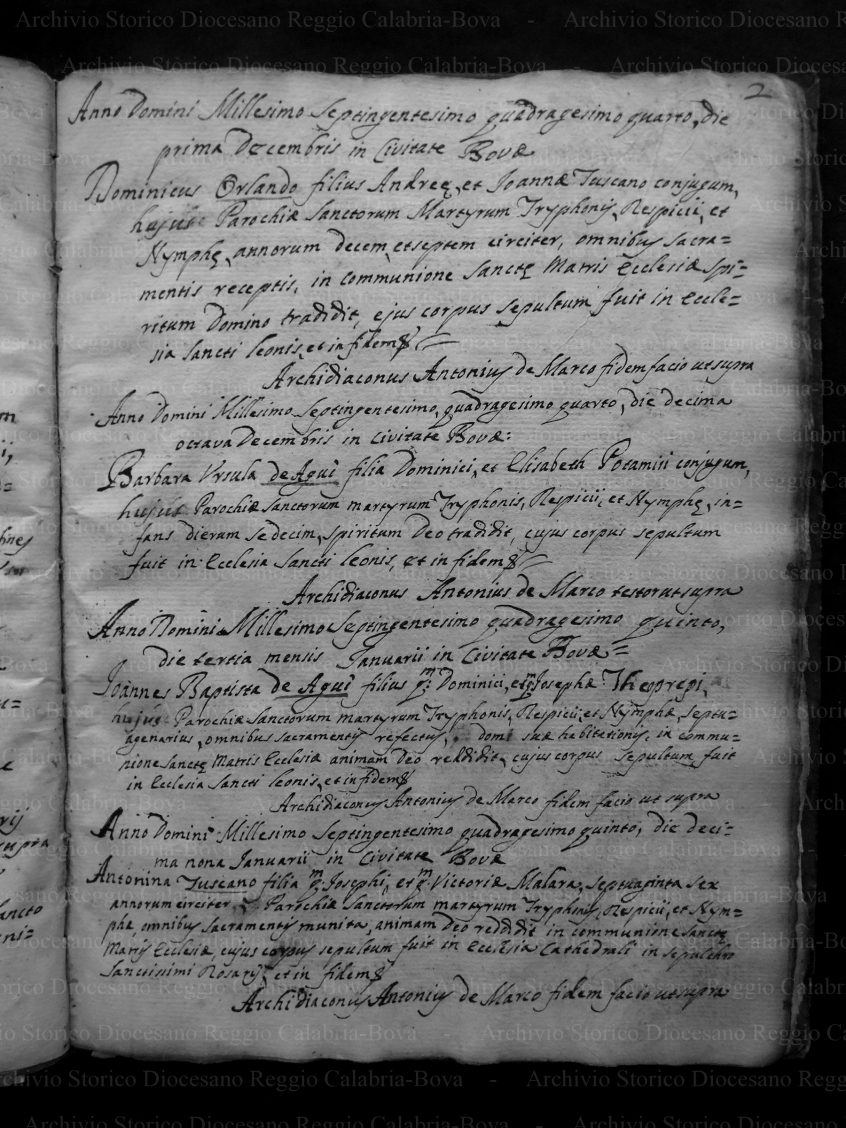 2
Anno Domini Millesimo Septingentesimo quadragesimo quarto, die
prima Decembris in Civitate Bovæ
Dominicus Orlando filius Andreę, et Joannæ Tuscano conjugum,
hujus Parochiæ Sanctorum Martyrum Tryphonis, Respicii, et
Nymphę, annorum decem, et septem circiter, omnibus sacra=
mentis receptis, in communione Sanctę Matris Ecclesiæ spi=
ritum Domino tradidit, ejus corpus sepultum fuit in Eccle=
sia Sancti Leonis, et in fidem
Archidiaconus Antonius de Marco fidem facio ut supra
Anno Domini Millesimo Septingentesimo, quadragesimo quarto, die decima
octava Decembris in Civitate Bovæ:
Barbara Vrsula de Aguì filia Dominici, et Elisabeth Potamisi conjugum,
hujus Parochiæ Sanctorum martyrum Tryphonis, Respicii, et Nymphę, in=
fans dierum sedecim, spiritum Deo tradidit, cujus corpus sepultum
fuit in Ecclesia Sancti Leonis, et in fidem
Archidiaconus Antonius de Marco testor ut supra
Anno Domini Millesimo Septingentesimo quadragesimo quinto,
die tertia mensis Januarii in Civitate Bovæ=
Joannes Baptista de Aguì filius qm: Dominici, et qm Josephæ
hujus Parochiæ Sanctorum martyrum Tryphonis, Respicii, et Nymphæ, septu=
agenarius, omnibus sacramentis refectus, domi suæ habitationis, in commu=
nione Sanctę Matris Ecclesiæ animam Deo reddidit, cujus corpus sepultum fuit
in Ecclesia Sancti Leonis, et in fidem
Archidiaconus Antonius de Marco fidem facio ut supra
Anno Domini Millesimo Septingentesimo quadragesimo quinto, die deci=
ma nona Januarii in Civitate Bovæ
Antonina Tuscano filia qm: Josephi, et qm: Victoriæ Malara, septuaginta sex
annorum circiter Parochiæ Sanctorum martyrum Tryphonis, Respicii, et Nym=
phæ, omnibus Sacramentis munita, animam Deo reddidit in communione Sanctæ
Matris Ecclesiæ, cujus corpus sepultum fuit in Ecclesia Cathedrali in sepulchro
Sanctissimi Rosarii, et in fidem
Archidiaconus Antonius de Marco fidem facio ut supra
Archivio Storico Diocesano Reggio Calabria-Bova